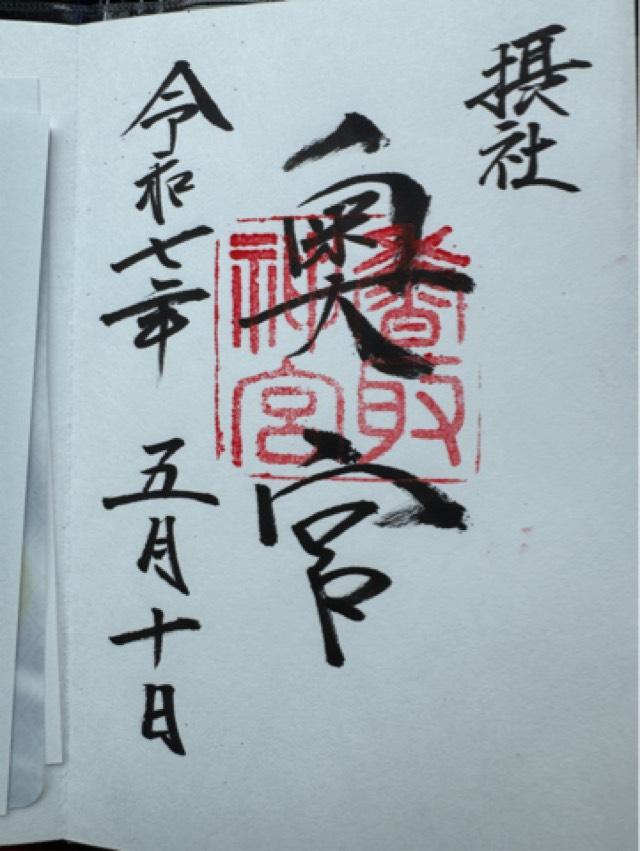 摂社
奥宮
香取神宮
令和七年 五月十日